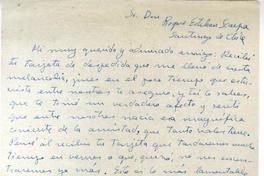 Sr. Don
Roque Esteban Scarpa
Santiago de Chile
Mi muy querido y admirado amigo: Recibí
tu tarjeta de despedida que me llenó de cierta
melancolía, pues en el poco tiempo que está
entre nosotros te aseguro, y tú lo sabes,
que te tomé un verdadero afecto y sentí
que entre nosotros nacía esa magnífica
corriente de la amistad, que tanto vale tener.
Pensé al recibir tu tarjeta que tardaremos mucho
tiempo en vernos o que, quizá, no nos encon-
traremos ya más. Eso es lo más lamentable